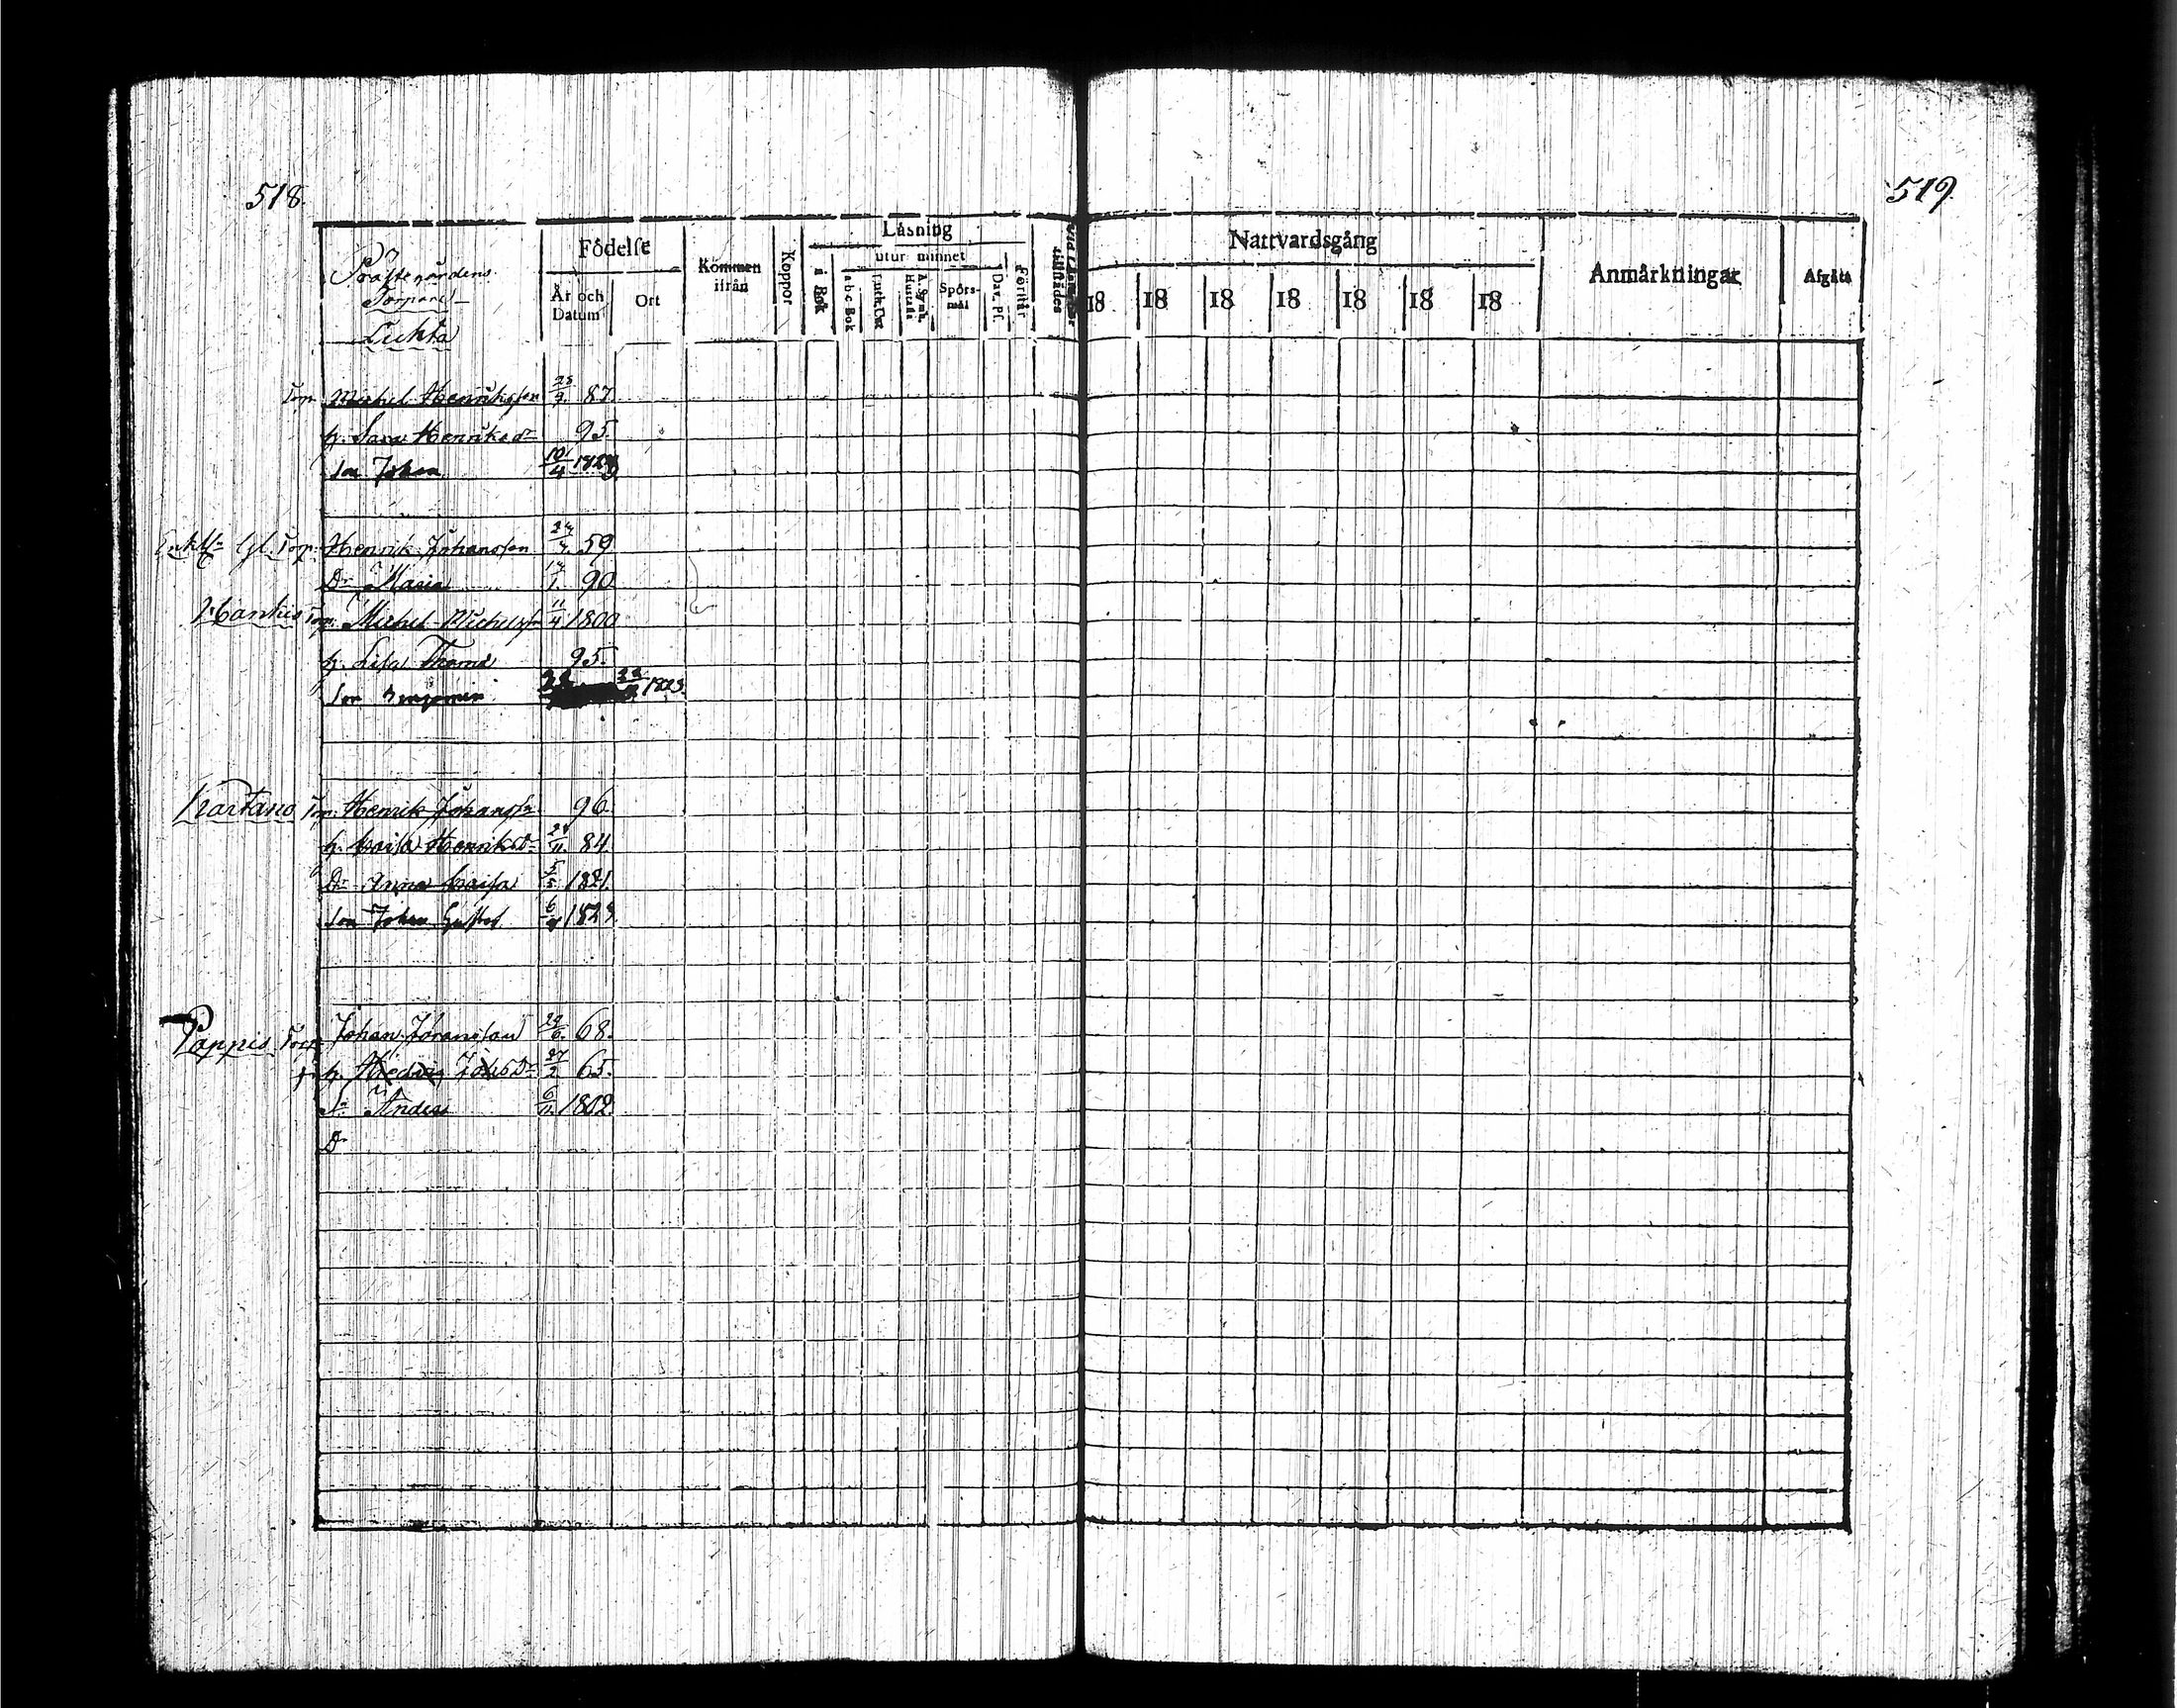 518.
519.
Präste gårdens
Torpare
Luhta
Födelse
År och Datum
Ort
Kommen ifrån
Koppor
Läsning
utur minnet
i Bok
a b c Bok
Luth. Cat
A. Symb. Hustafl
Spörsmål
Dav. Ps.
Förstår
tillstädes
Nattvardsgång
18 18 18 18 18 18 18
Anmärkningar
Afgått
Torp. Michel Henriksson 28/9. 87.
h. Sara Henriksdr 95.
Son Johan 10/4 1829
Gl. Torp. Henrik Johansson 59
Dr Maria 1. 90
Torp. Michel Michelsson 11/4 1800
h. Lisa Thoms 95.
Son Benjamin 22 1823.
Kartano Torp. Henrik Johanss. 96.
h. Caisa Henriksdr 11. 84.
Dr Anna Caisa 5/5 1821.
Son Johan Gustaf 6 1823.
Pappis Torp. Johan Göransson 29/6. 68.
h. Hedvig Johsdr 27/2 65.
Sn Anders 6/11. 1802.
Dr